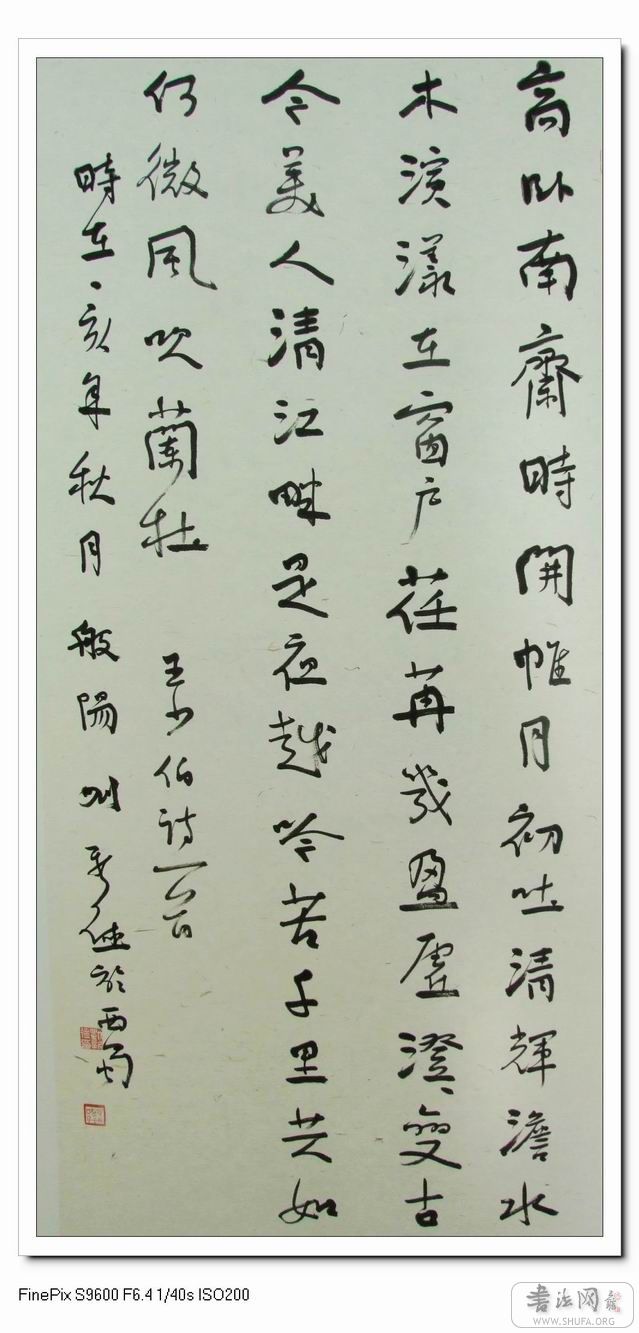 高卧南齋時開帷月初吐清輝澹水
木演漾在窗户荏苒幾盈虚澄〻變古
今美人清江畔是夜越吟苦千里共如
何微風吹蘭杜 王少伯詩一首
時在亥年秋月 般陽 於西蜀
FinePix S9600 F6.4 1/40s ISO200
書法网
WWW.SHUFA.ORG